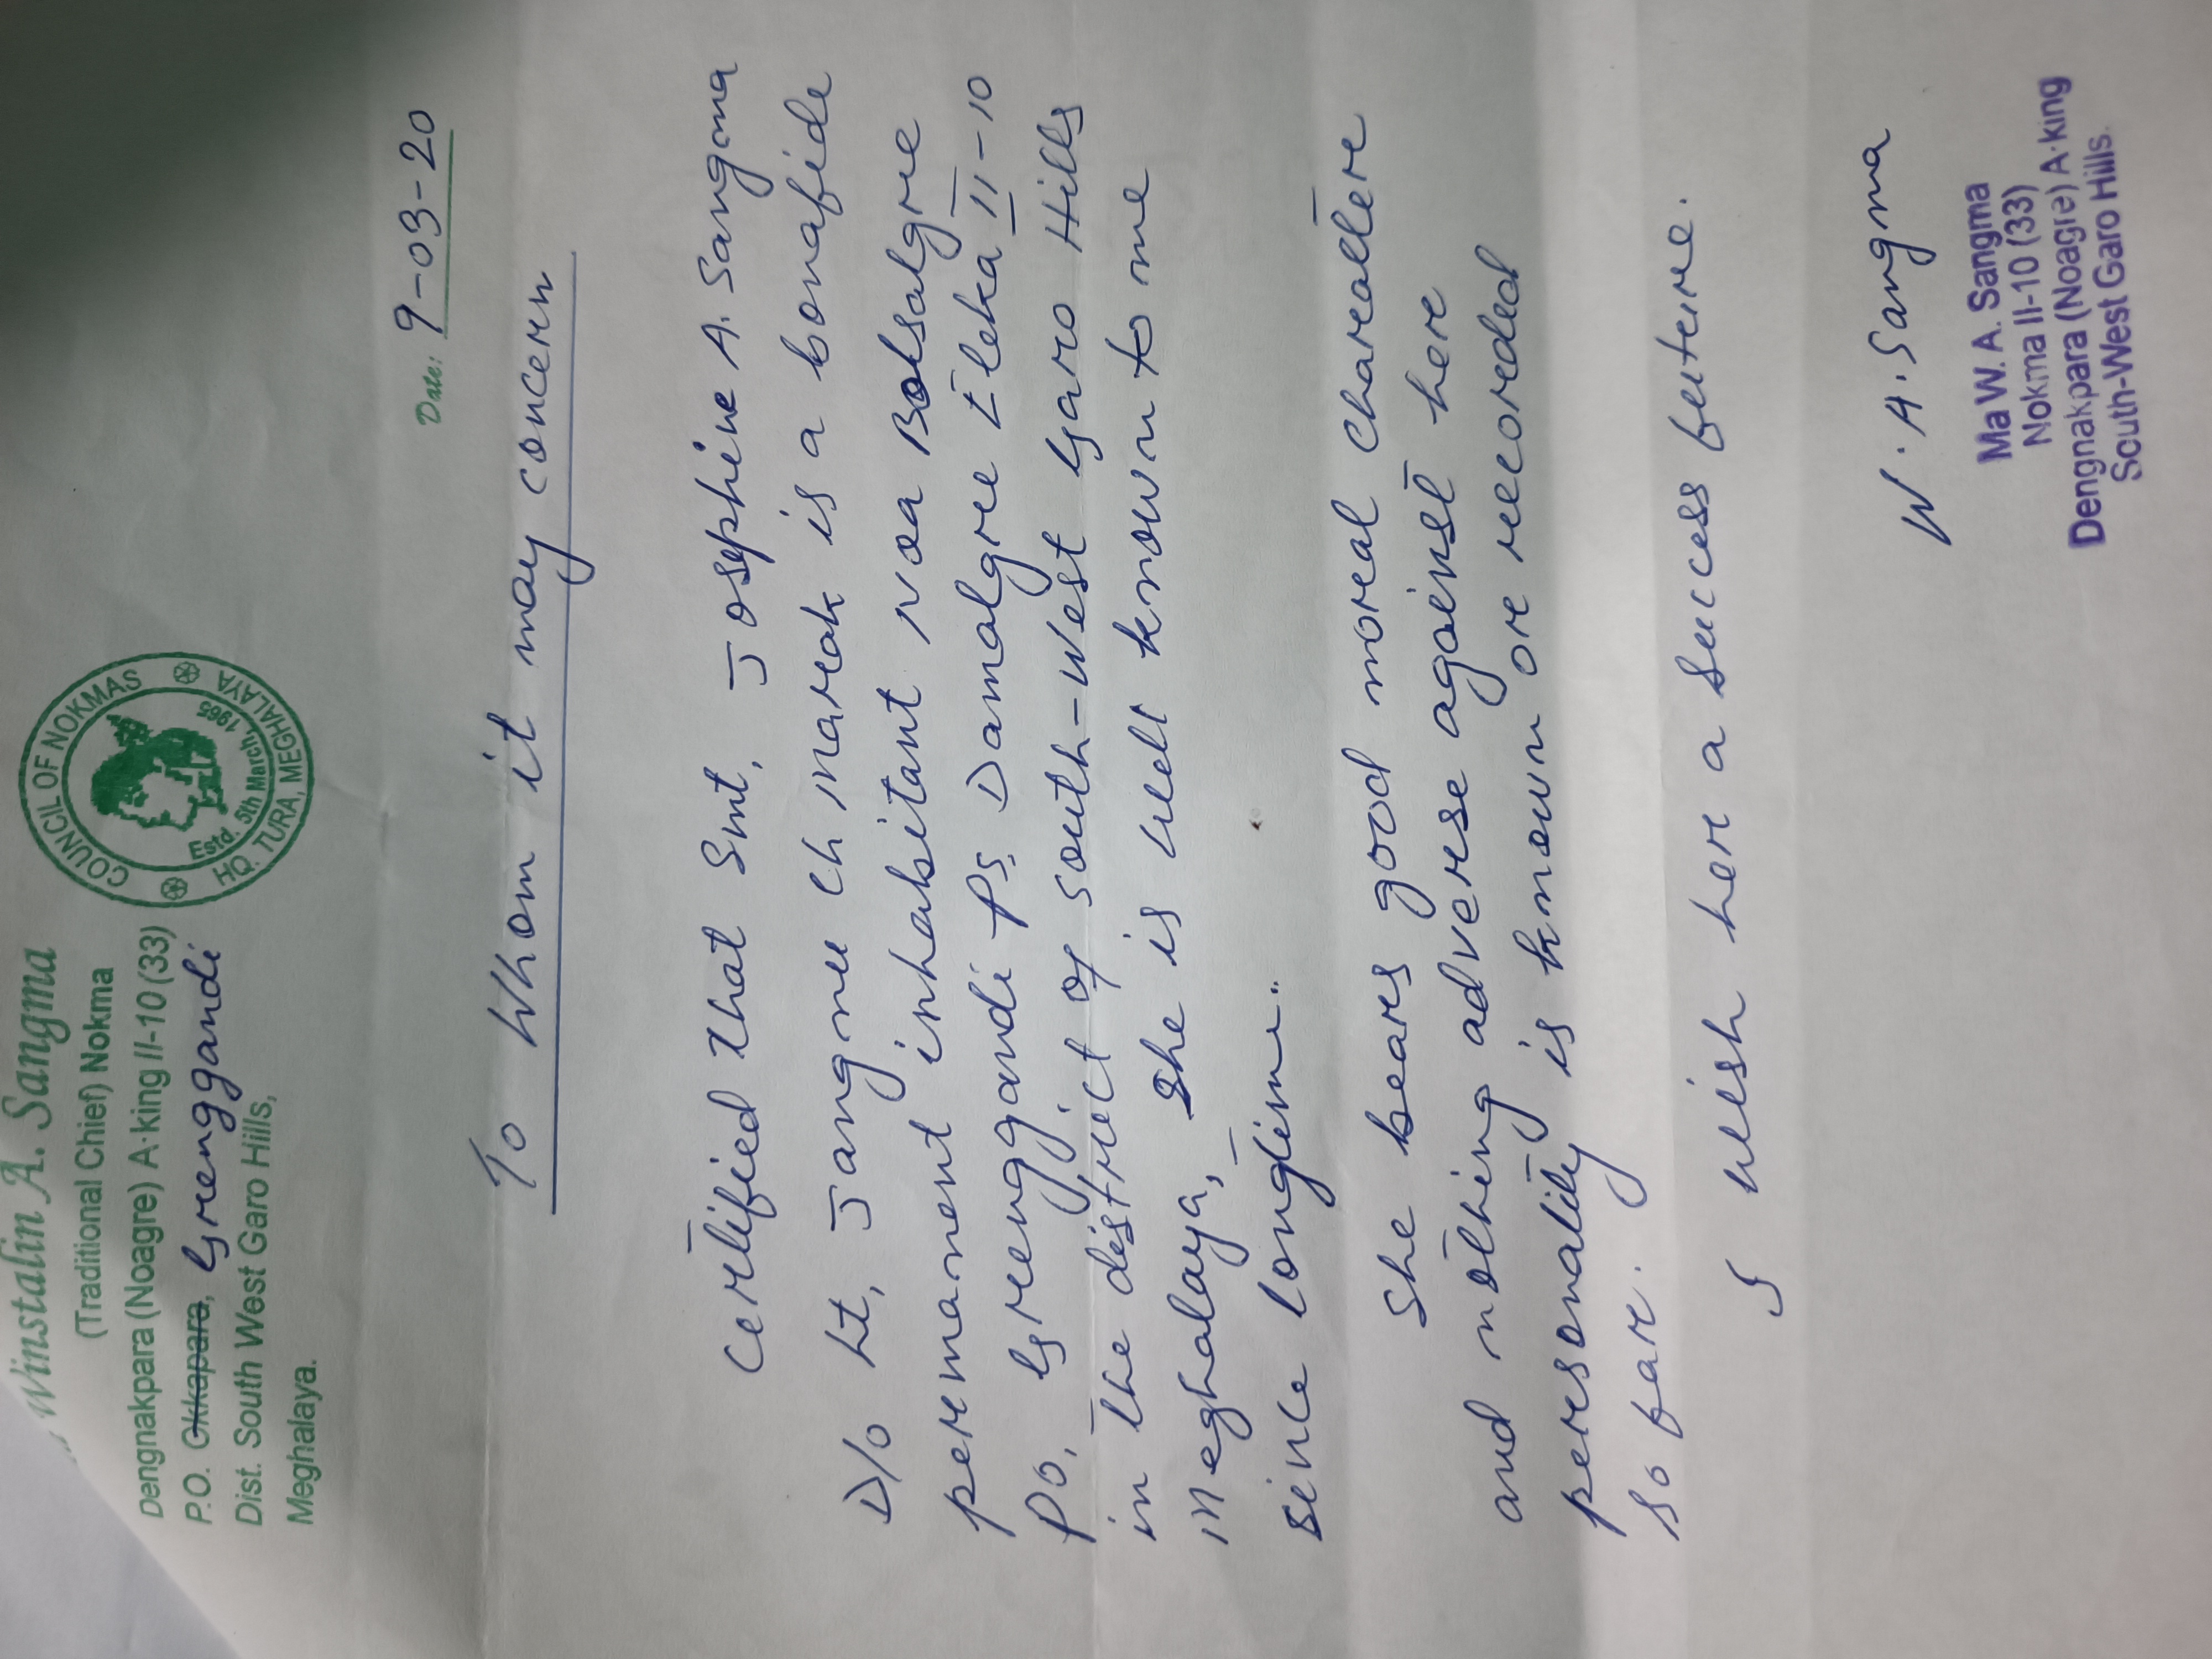 Winstalin A. Sangma
(Traditional Chief) Nokma
Dengnakpara (Noagre) A·king II-10 (33)
P.O. Okkapara, Grenggandi
Dist. South West Garo Hills,
Meghalaya.
COUNCIL OF NOKMAS
Estd. 5th March, 1965
HQ. TURA, MEGHALAYA
Date: 9-03-20
To Whom it may concern
Certified that Smt, Josephine A. Sangma
D/o Lt, Jangnu Ch Marak is a bonafide
permanent inhabitant Noa Bolsalgre
PO, Grenggandi PS, Damalgre Eleka II-10
in the district of South-West Garo Hills
Meghalaya, She is well known to me
since longtime.
She bears good moral charecter
and nothing adverse against here
personality is known or recorded
so far.
I wish her a success future.
W. A. Sangma
Ma W. A. Sangma
Nokma II-10 (33)
Dengnakpara (Noagre) A·king
South-West Garo Hills.